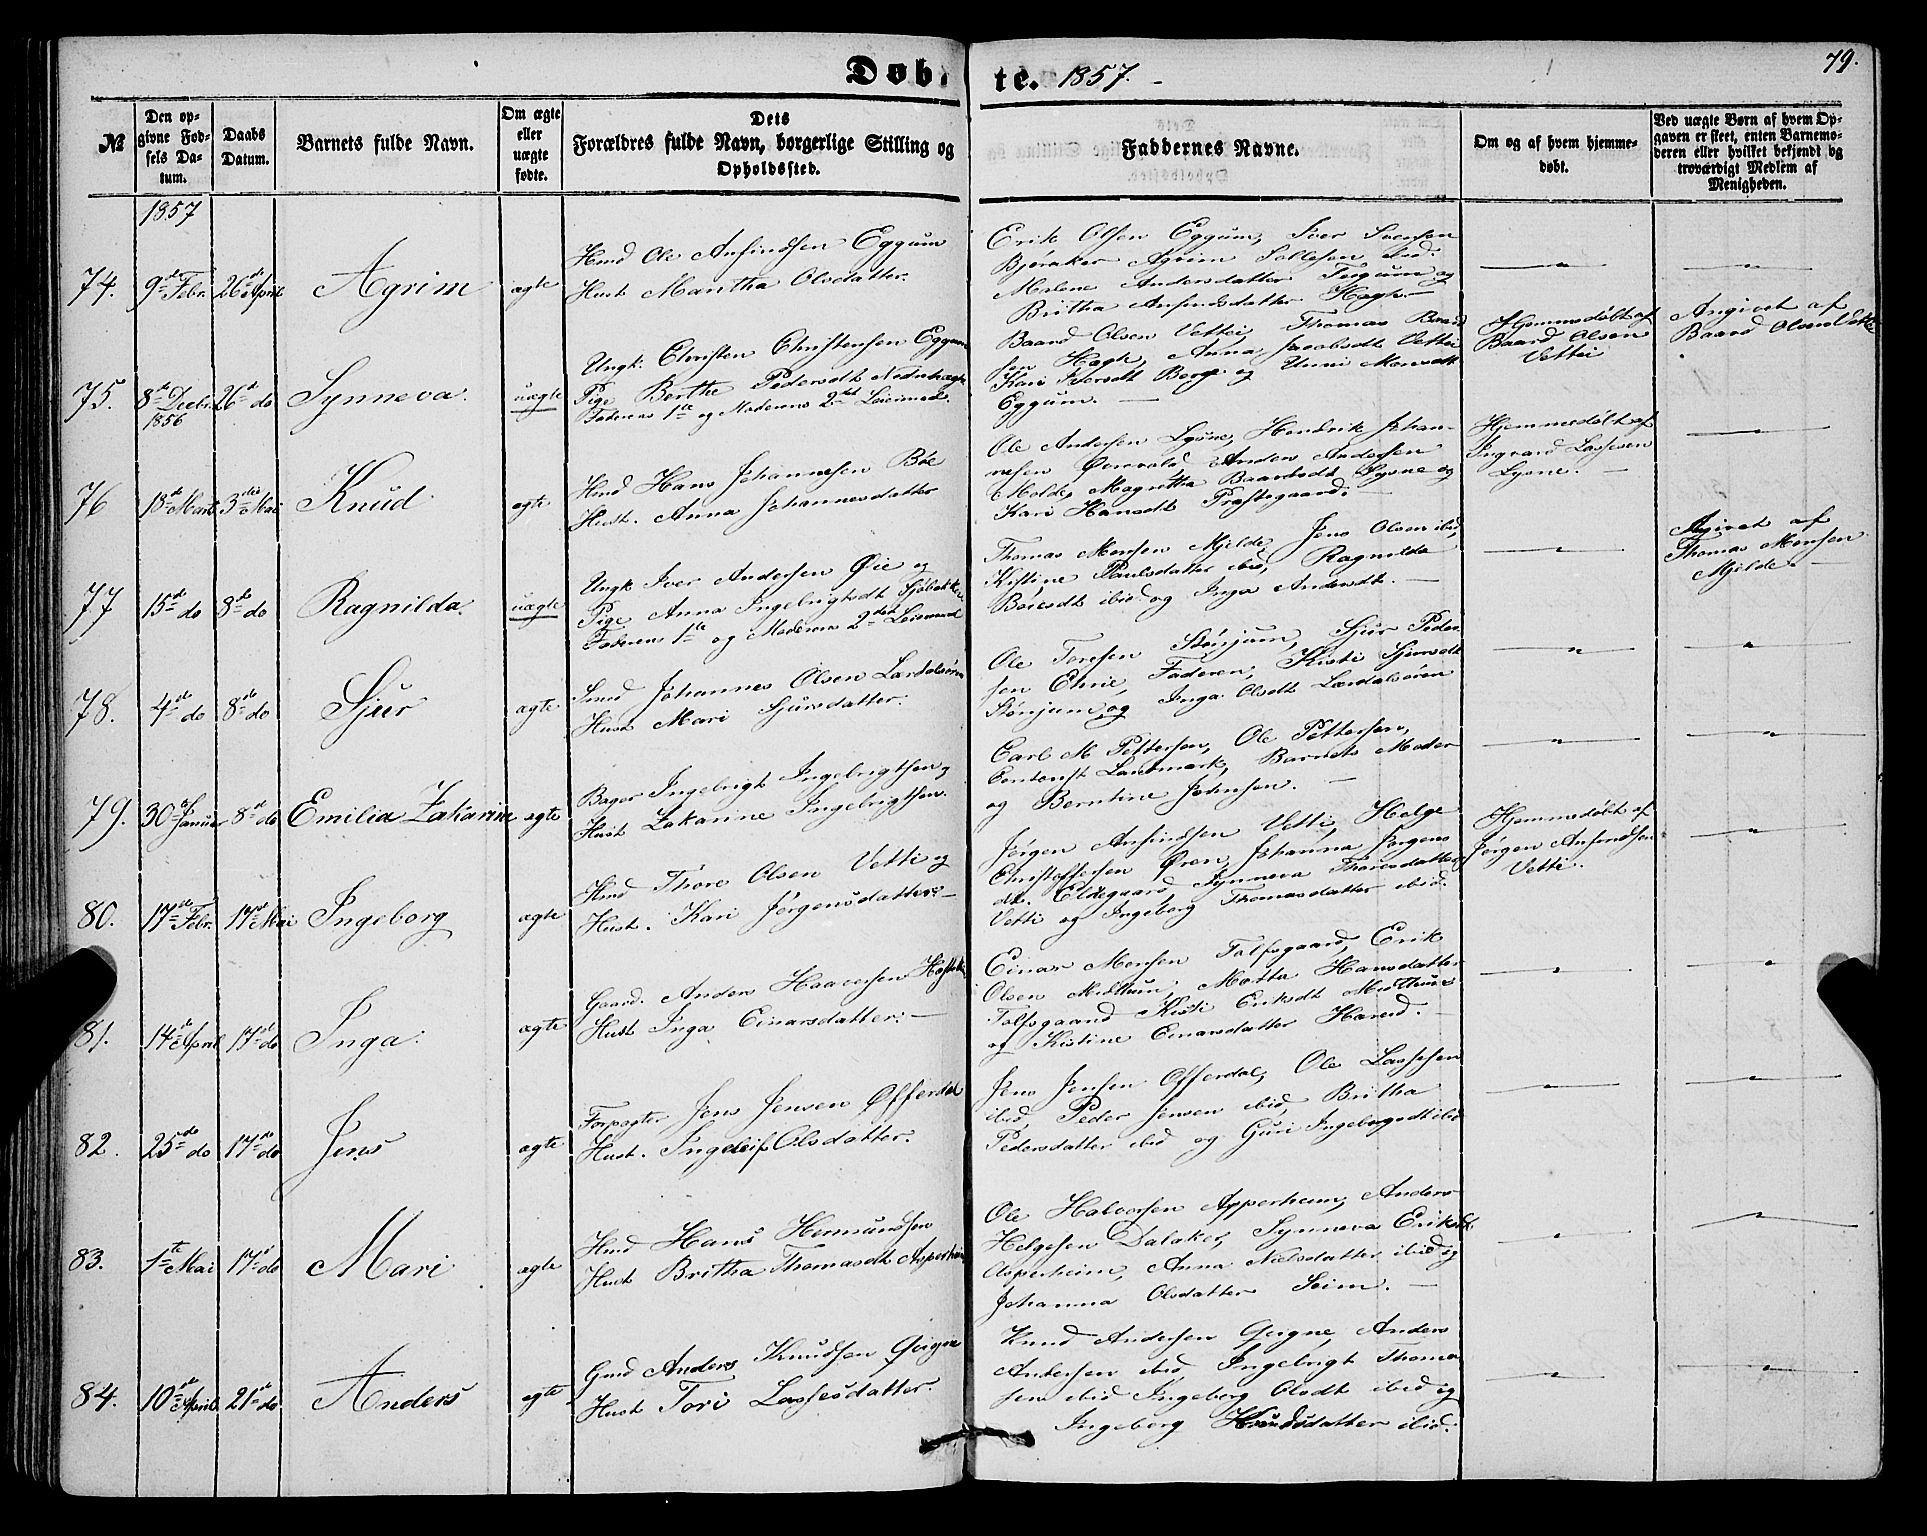 Døbte. 1857.
79.
№
Den opgivne Fødsels Datum.
Daabs Datum.
Barnets fulde Navn.
Om ægte eller uægte fødte.
Dets Forældres fulde Navn, borgerlige Stilling og Opholdssted.
Faddernes Navne.
Om og af hvem hjemmedøbt.
Ved uægte Børn af hvem Opgaven er skeet, enten Barnemoderen eller hvilket bekjendt og troværdigt Medlem af Menigheden.
1857
74. 9de Febr. 26de April Agrim ægte
Hmd Ole Anfindsen Eggum
Hust Martha Olsdatter.
Erik Olsen Eggum, Iver Svensen
Bjøraker Agrim Sollesen ibid.
Malene Andersdatter Teigum og
Britha Anfindsdatter Hagh.
75. 8de Decbr. 1856 26de do Synneva. uægte
Ungk. Christen Christensen Eggum
Pige Berthe Pedersdt
Faderens 1ste og Moderens 2det Leiermaal.
Baard Olsen Vetti, Thomas Baard
sen Hagh, Anna Jacobsdt Vetti
Kari Iversdt Berge og Unni Monsdt
Eggum.
Hjemmedøbt af
Baard Olsen
Vetti
Angivet af
Baard Olsen Vetti
76 13de Mart 3die Mai Knud ægte
Hmd Hans Johannesen Bøe
Hust. Anna Johannesdatter
Ole Andersen Lysne, Hendrik Johan-
nesen Anders Andersen
Molde, Magretha Baardsdt Lysne og
Kari Hansdt Præstegaard.
Hjemmedøbt af
Ingvard Lassesen
Lysne.
77 15de do 8de do Ragnilda. uægte
Ungk Iver Andersen Øie og
Pige Anna Ingebrigtsdt
Faderens 1ste og Moderens 2det Leiermaal
Thomas Monsen Mjelde, Jens Olsen ibid,
Kistine Paulsdatter ibid, Ragnilda
Boiesdt ibid og Inga Andersdt.
Agivet af
Thomas Monsen
Mjelde.
78. 4de do 8de do Sjur ægte
Smd Johannes Olsen Lærdalsøren
Hust Mari Sjursdatter.
Ole Toresen Stønjum, Sjur Peder-
sen Ehrie, Faderen, Kisti Sjursdt
Stønjum og Inga Olsdt Lærdalsøren
79. 30te Januar 8de do Emilia Zakarine ægte
Bager Ingebrigt Ingebrigtsen og
Hust Zakarine Ingebrigtsen.
Carl M Pettersen, Ole Pettersen,
Landmark, Barnets Moder
og Berntine Johnsen.
80. 17de Febr. 17de Mai Ingeborg ægte
Hmd Thore Olsen Vetti og
Hust. Kari Jørgensdatter.
Jørgen Anfindsen Vetti, Helge
Christoffersen Øren, Johanna Jørgens
dt. Eldegaard, Synneva Thoresdatter
Vetti og Ingeborg Thomasdatter ibid.
Hjemmedøbt af
Jørgen Anfindsen
Vetti.
81. 14de April 17de do Inga. ægte
Gaard. Anders Haavesen
Hust Inga Einarsdatter.
Einar Monsen Tolfsgaard, Erik
Olsen Midthun, Martta Hansdatter
Tolfsgaard Kisti Eriksdt Midthun
og Kistine Einarsdatter Hareid.
82. 25de do 17de do Jens ægte
Forpagter Jens Jensen Offerdal
Hust. Ingeleif Olsdatter.
Jens Jensen Offerdal, Ole Lassesen
ibid, Peder Jensen ibid, Britha
Pedersdatter ibid og Guri Ingeborgsdt ibid
83. 1ste Mai 17de do Mari ægte
Hmd Hans Hermundsen
Hust Britha Thomasdt Asperheim
Ole Halvorsen Asperheim, Anders
Helgesen Dalaker, Synneva Eriksdt
Asperheim, Anna Nielsdatter ibid og
Johanna Olsdatter Seim.
84. 10de April 21de do Anders ægte
Gmd Anders Knudsen Geigne
Hust Tori Lassesdatter.
Knud Andersen Geigne, Anders
Andersen ibid, Ingebrigt Thoma
sen ibid Ingeborg Olsdt ibid og
Ingeborg Knudsdatter ibid.